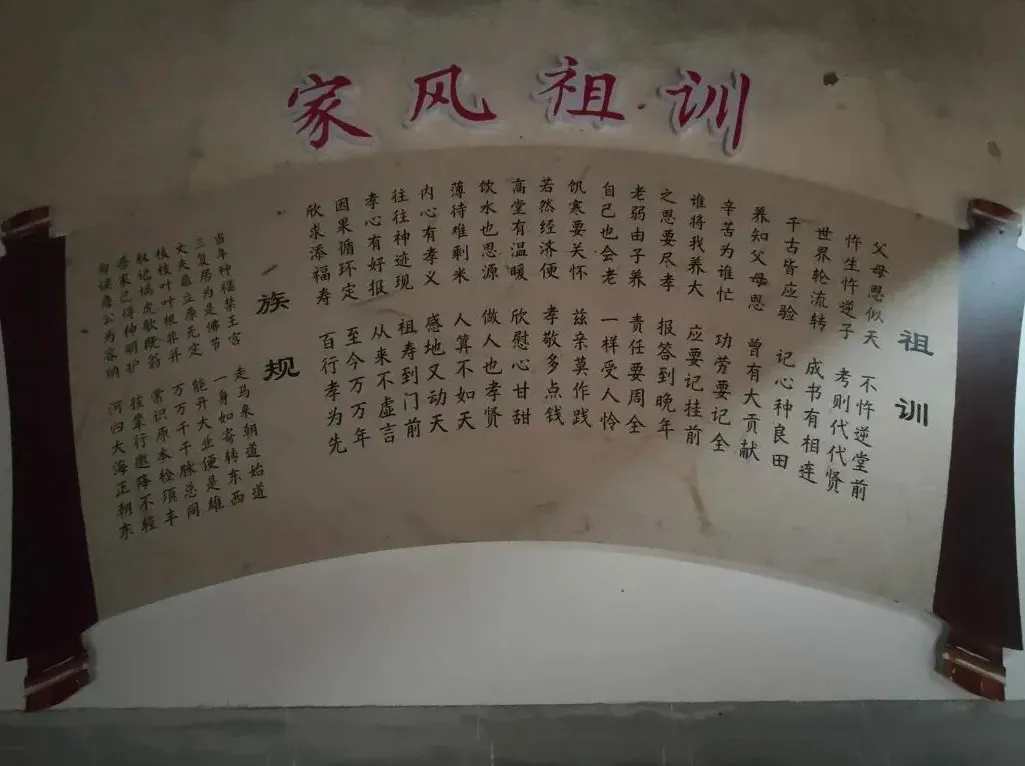 家风祖训
祖训
父母恩似天 不忤逆堂前
忤生忤逆子 考则代代贤
世界轮流转 成书有相连
千古皆应验 记心种良田
养知父母恩 曾有大贡献
辛苦为谁忙 功劳要记全
谁将我养大 应要记挂前
之恩要尽孝 报答到晚年
老弱由子养 责任要周全
自己也会老 一样受人怜
饥寒要关怀 兹亲莫作践
若然经济便 孝敬多点钱
高堂有温暖 欣慰心甘甜
饮水也思源 做人也孝贤
薄待难剩米 人算不如天
内心有孝义 感地又动天
往往神迹现 祖寿到门前
孝心有好报 从来不虚言
因果循环定 至今万万年
欣求添福寿 百行孝为先
族规
当年种福禁王宫 走马来朝道始道
三复居为是佛节 一身如寄转东西
大夫立序无定 能开大业便是雄
枝枝叶叶根并 万万千千脉总同
记填虎 常识原本检须丰
来己得种明护 行邀降不轻
公为容纳 河归大海正朝东